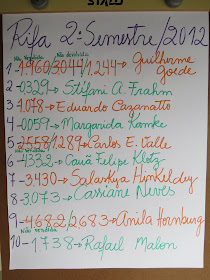 Rifa 2º Semestre/2012
Não Vendido Não devolvido
1-4.960/3044/1.244→ Guilherme Goede
2-0329→ Stéfani A. Frahm
3-4.078→ Eduardo Cazanatto
4-0059→ Margarida Ramke
Não Vendido
5-2558/1.287→ Carlos E. Valle
6-4332→ Cauã Felipe Klotz
7-3.430→ Salarkya Hinkeldey
8-3.073→ Cassiane Neves
Não vendido
9-4682/2.683→ Anila Hornburg
Não Vendido
10-1738→ Rafael Malon